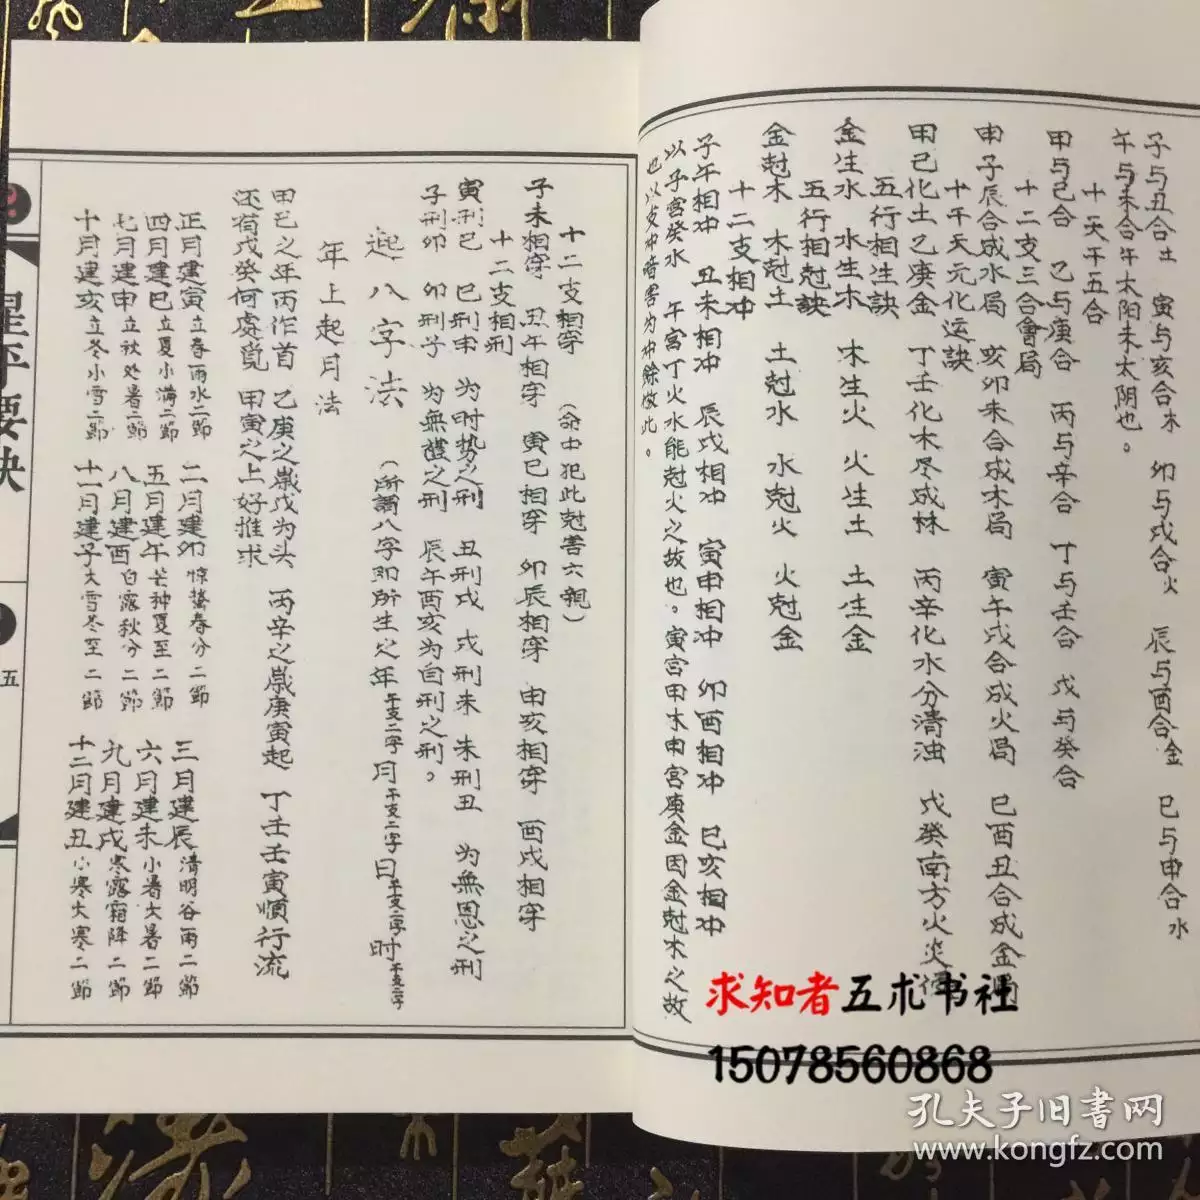 子与丑合土　寅与亥合木　卯与戌合火　辰与酉合金　巳与申合水
午与未合午太阳未太阴也。
十天干五合
甲与己合　乙与庚合　丙与辛合　丁与壬合　戊与癸合
十二支三合會局
申子辰合成水局　亥卯未合成木局　寅午戌合成火局　巳酉丑合成金局
十干天元化运訣
甲己化土乙庚金　丁壬化木尽成林　丙辛化水分清浊　戊癸南方火炎
五行相生訣
金生水　水生木　木生火　火生土　土生金
五行相尅訣
金尅木　木尅土　土尅水　水尅火　火尅金
十二支相冲
子午相冲　丑未相冲　辰戌相冲　寅申相冲　卯酉相冲　巳亥相冲
以子宮癸水　午宮丁火水能尅火之故也。寅宮甲木申宮庚金因金尅木之故
也以支冲暗害为冲餘倣此。
十二支相穿　（命中犯此尅害六親）
子未相穿　丑午相穿　寅巳相穿　卯辰相穿　申亥相穿　酉戌相穿
十二支相刑
寅刑巳　巳刑申　为时势之刑　丑刑戌　戌刑未　未刑丑　为無恩之刑
子刑卯　卯刑子　为無禮之刑　辰午酉亥为自刑之刑。
起八字法　（所謂八字即所生之年干支二字月干支二字日干支二字时干支二字
年上起月法
甲己之年丙作首　乙庚之嵗戊为头　丙辛之嵗庚寅起　丁壬壬寅順行流
还有戊癸何處覓　甲寅之上好推求
正月建寅立春雨水二節　二月建卯惊蟄春分二節　三月建辰清明谷雨二節
四月建巳立夏小满二節　五月建午芒种夏至二節　六月建未小暑大暑二節
七月建申立秋处暑二節　八月建酉白露秋分二節　九月建戌寒露霜降二節
十月建亥立冬小雪二節　十一月建子大雪冬至二節　十二月建丑小寒大寒二節
星平要訣
五
求知者五术书社
15078560868
孔夫子旧書网
www.kongfz.com